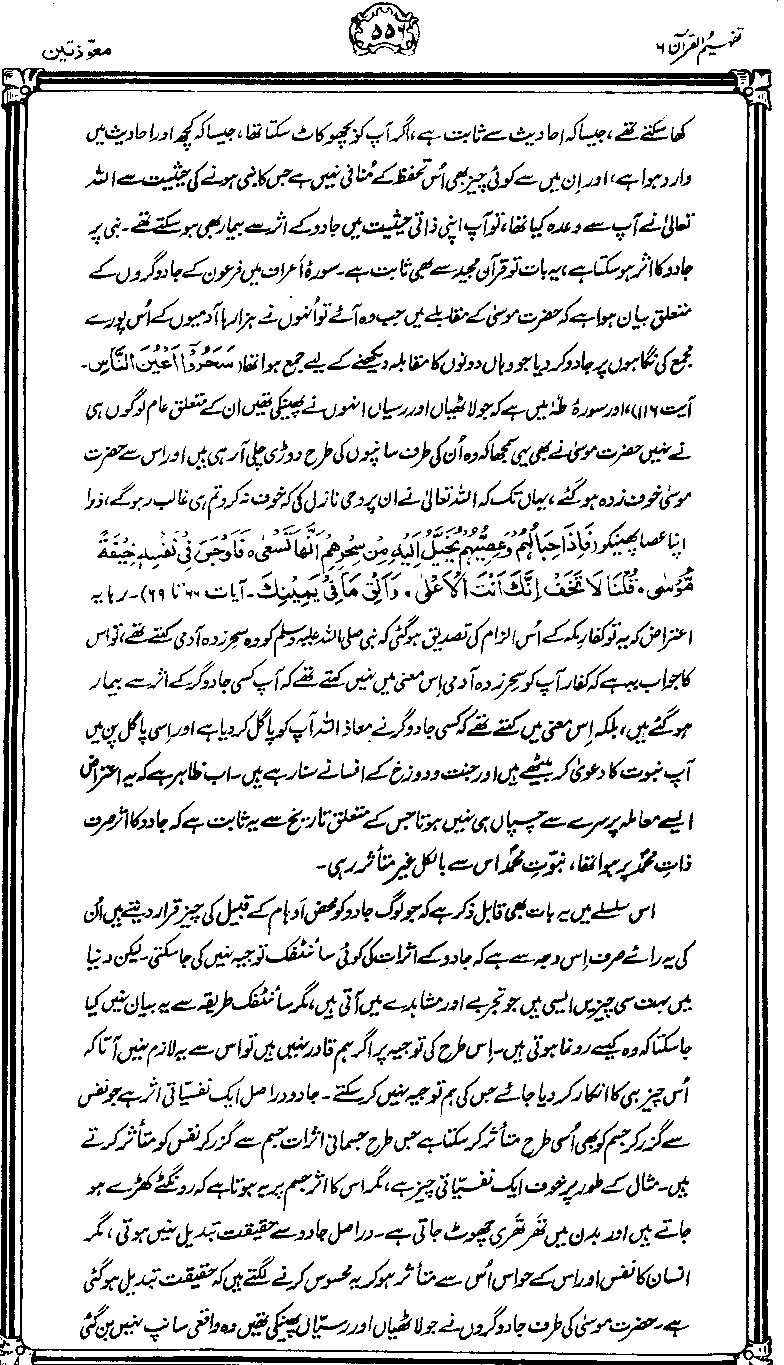 تفہیم القرآن ۶
۵۵۶
معوّذتین
کھا سکتے تھے، جیسا کہ احادیث سے ثابت ہے، اگر آپ کو بچھو کاٹ سکتا تھا، جیسا کہ کچھ اور احادیث میں
وارد ہوا ہے، اور اِن میں سے کوئی چیز بھی اُس تحفظ کے مُنافی نہیں ہے جس کا نبی ہونے کی حیثیت سے اللہ
تعالیٰ نے آپ سے وعدہ کیا تھا، تو آپ اپنی ذاتی حیثیت میں جادو کے اثر سے بیمار بھی ہو سکتے تھے۔ نبی پر
جادو کا اثر ہو سکتا ہے، یہ بات تو قرآن مجید سے بھی ثابت ہے۔ سورۂ اَعراف میں فرعون کے جادوگروں کے
متعلق بیان ہوا ہے کہ حضرت موسیٰ کے مقابلے میں جب وہ آئے تو اُنہوں نے ہزارہا آدمیوں کے اُس پورے
مجمع کی نگاہوں پر جادو کر دیا جو وہاں دونوں کا مقابلہ دیکھنے کے لیے جمع ہوا تھا (سَحَرُوْٓا اَعْیُنَ النَّاسِ۔
آیت ۱۱۶)، اور سورۂ طٰہٰ میں ہے کہ جو لاٹھیاں اور رسیاں انہوں نے پھینکی تھیں ان کے متعلق عام لوگوں ہی
نے نہیں حضرت موسیٰ نے بھی یہی سمجھا کہ وہ اُن کی طرف سانپوں کی طرح دوڑی چلی آ رہی ہیں اور اس سے حضرت
موسیٰ خوف زدہ ہو گئے، یہاں تک کہ اللہ تعالیٰ نے ان پر وحی نازل کی کہ خوف نہ کرو تم ہی غالب رہو گے، ذرا
اپنا عصا پھینکو (فَاِذَا حِبَالُهُمْ وَعِصِیُّهُمْ یُخَیَّلُ اِلَیْهِ مِنْ سِحْرِهِمْ اَنَّهَا تَسْعٰی ہ فَاَوْجَسَ فِیْ نَفْسِهٖ خِیْفَةً
مُّوْسٰی ہ قُلْنَا لَا تَخَفْ اِنَّكَ اَنْتَ الْاَعْلٰی ہ وَاَلْقِ مَا فِیْ یَمِیْنِكَ۔ آیات ۶۶ تا ۶۹)۔ رہا یہ
اعتراض کہ یہ تو کفارِ مکہ کے اُس الزام کی تصدیق ہو گئی کہ نبی صلی اللہ علیہ وسلم کو وہ سحر زدہ آدمی کہتے تھے، تو اس
کا جواب یہ ہے کہ کفار آپ کو سحر زدہ آدمی اِس معنی میں نہیں کہتے تھے کہ آپ کسی جادوگر کے اثر سے بیمار
ہو گئے ہیں، بلکہ اِس معنی میں کہتے تھے کہ کسی جادوگر نے معاذ اللہ آپ کو پاگل کر دیا ہے اور اِسی پاگل پن میں
آپ نبوت کا دعویٰ کر بیٹھے ہیں اور جنت و دوزخ کے افسانے سنا رہے ہیں۔ اب ظاہر ہے کہ یہ اعتراض
ایسے معاملہ پر سرے سے چسپاں ہی نہیں ہوتا جس کے متعلق تاریخ سے یہ ثابت ہے کہ جادو کا اثر صرف
ذاتِ محمدؐ پر ہوا تھا، نبوّتِ محمدؐ اس سے بالکل غیر متأثر رہی۔
اس سلسلے میں یہ بات بھی قابل ذکر ہے کہ جو لوگ جادو کو محض اَوہام کے قبیل کی چیز قرار دیتے ہیں اُن
کی یہ رائے صرف اِس وجہ سے ہے کہ جادو کے اثرات کی کوئی سائنٹفک توجیہ نہیں کی جا سکتی۔ لیکن دنیا
میں بہت سی چیزیں ایسی ہیں جو تجربے اور مشاہدے میں آتی ہیں، مگر سائنٹفک طریقہ سے یہ بیان نہیں کیا
جا سکتا کہ وہ کیسے رونما ہوتی ہیں۔ اِس طرح کی توجیہ پر اگر ہم قادر نہیں ہیں تو اس سے یہ لازم نہیں آتا کہ
اُس چیز ہی کا انکار کر دیا جائے جس کی ہم توجیہ نہیں کر سکتے۔ جادو دراصل ایک نفسیّاتی اثر ہے جو نفس
سے گزر کر جسم کو بھی اُسی طرح متأثر کر سکتا ہے جس طرح جسمانی اثرات جسم سے گزر کر نفس کو متأثر کرتے
ہیں۔ مثال کے طور پر خوف ایک نفسیّاتی چیز ہے، مگر اس کا اثر جسم پر یہ ہوتا ہے کہ رونگٹے کھڑے ہو
جاتے ہیں اور بدن میں تھر تھری چھوٹ جاتی ہے۔ دراصل جادو سے حقیقت تبدیل نہیں ہوتی، مگر
انسان کا نفس اور اس کے حواس اُس سے متأثر ہو کر یہ محسوس کرنے لگتے ہیں کہ حقیقت تبدیل ہو گئی
ہے۔ حضرت موسیٰ کی طرف جادوگروں نے جو لاٹھیاں اور رسیّاں پھینکی تھیں وہ واقعی سانپ نہیں بن گئی